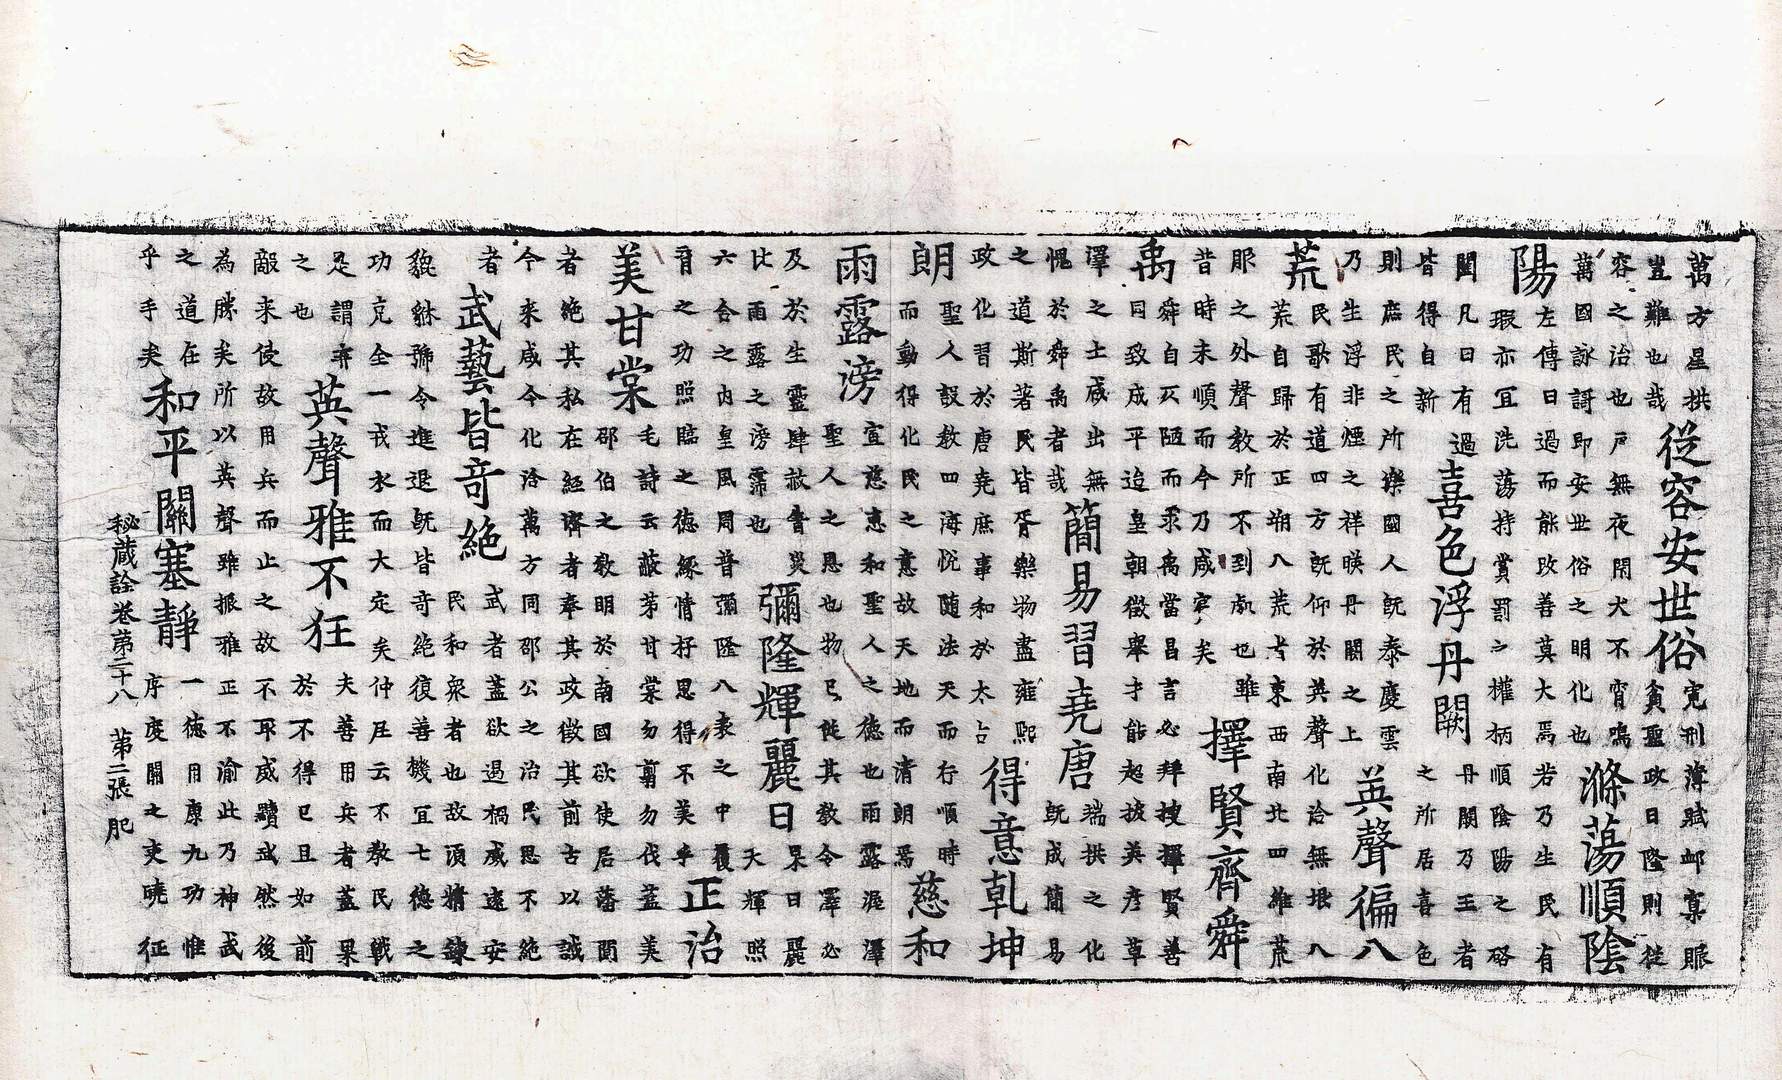 萬方星拱豈難也哉從容安世俗寬刑薄賦卹稟賑貧聖政日隆則從
容之治也戶無夜閉犬不宵鳴萬國詠謌即安世俗之明化也滌蕩順陰
陽左傳曰過而能改善莫大焉若乃生民有瑕亦宜洗蕩持賞罰之權柄順陰陽之啓
闔凡曰有過皆得自新喜色浮丹闕丹闕乃王者之所居喜色
則庶民之所樂國人既泰慶雲乃生浮非煙之祥暎丹闕之上英聲徧八
荒民歌有道四方既仰於英聲化洽無垠八荒自歸於正朔八荒者東西南北四維荒
服之外聲教所不到處也雖昔時未順而今乃咸賓矣擇賢齊舜
禹舜自仄陋而升禹當昌言必拜搜擇賢善同致成平迨皇朝徵舉才能起拔英彥草
澤之士咸出無愧於舜禹者哉簡易習堯唐端拱之化既成簡易
之道斯著民皆胥樂物盡雍熙政化習於唐堯庶事和於太古得意乾坤
朗聖人設教四海悅隨法天而行順時而動得化民之意故天地而清朗焉慈和
雨露滂宣慈惠和聖人之德也雨露渥澤聖人之恩也物已從其教令澤必
及於生靈肆赦眚災比雨露之滂霈也彌隆輝麗日杲日麗天輝照
六合之內皇風周普彌隆八表之中覆育之功照臨之德緣情抒思得不美乎正治
美甘棠毛詩云蔽芾甘棠勿翦勿伐蓋美邵伯之教明於南國欲使居藩閫
者絕其私在經濟者奉其政徵其前古以誠今來咸令化洽萬方同邵公之治民思不絕
者武藝皆奇絕武者蓋欲遏禍威遠安民和衆者也故須精鍊
貔貅號令進退既皆奇絕復善機宜七德之功克全一戎衣而大定矣仲尼云不教民戰
是謂弃之也英聲雅不狂夫善用兵者蓋果於不得已且如前
敵來使故用兵而止之故不取威黷武然後為勝矣所以英聲雖振雅正不渝此乃神武
之道在乎手矣和平關塞靜一德用康九功惟序虔關之吏曉征
秘藏詮卷第二十八　第二張　肥